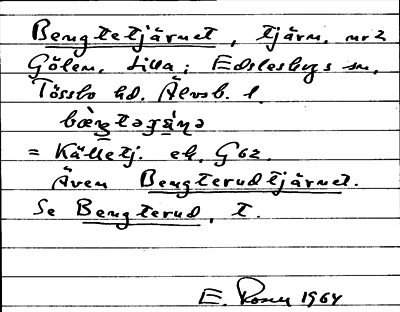 Bengtetjärnet, tjärn, nr 2
Gölen, Lilla; Edslesbugs sn,
Tössbo hd. Älvsb. l.
bæ̀ŋtəɟä̀ṇə
= Källetj. ek. G62.
Även Bengterudtjärnet.
Se Bengterud, t.
E. 1964